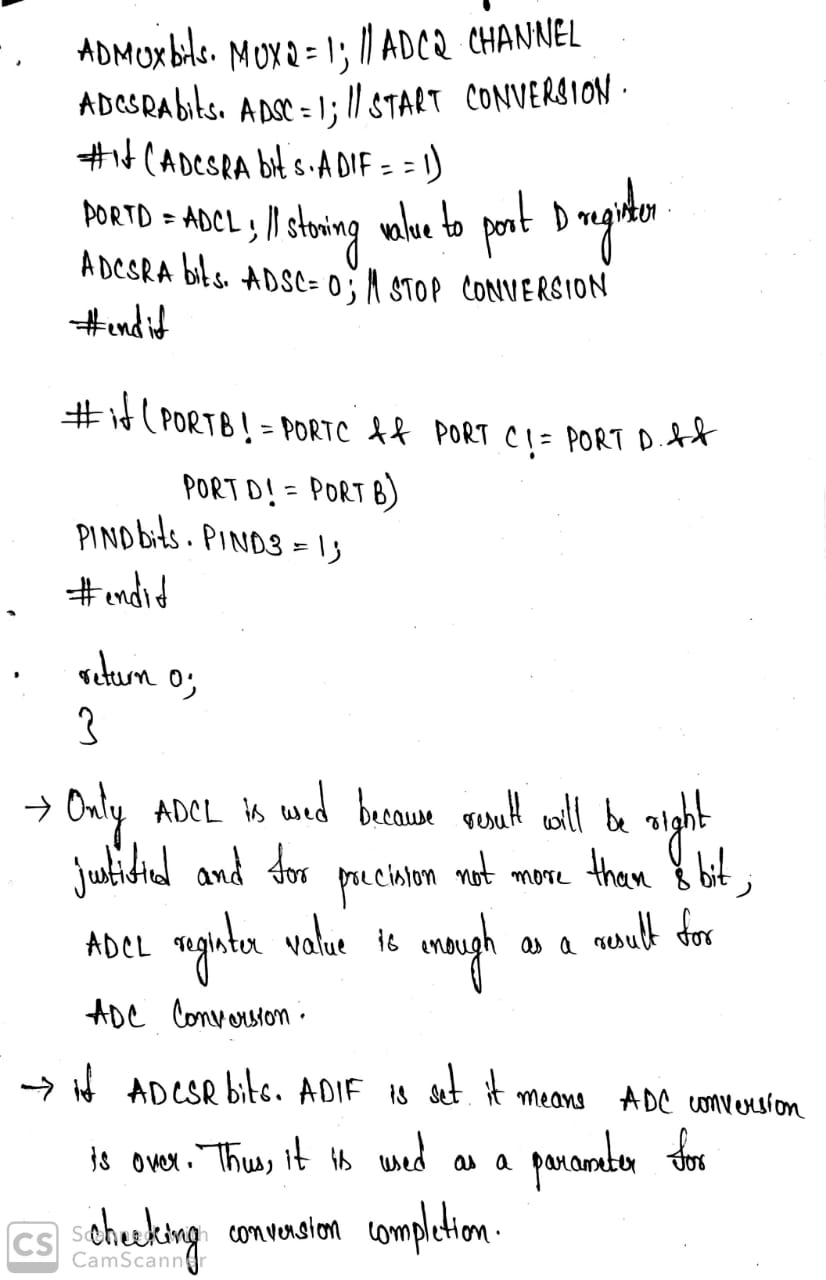 ADMUXbits. MUX2 = 1; // ADC2 CHANNEL
ADCSRAbits. ADSC = 1; // START CONVERSION.
#if (ADCSRA bits.ADIF = = 1)
PORTD = ADCL; // storing value to port D register.
ADCSRA bits. ADSC = 0; // STOP CONVERSION
#endif
#if (PORTB! = PORTC && PORT C! = PORT D. &&
PORT D! = PORT B)
PINDbits. PIND3 = 1;
#endif
return 0;
}
→ Only ADCL is used because result will be right
justified and for precision not more than 8 bit;
ADCL register value is enough as a result for
ADC Conversion.
→ if ADCSR bits. ADIF is set it means ADC conversion
is over. Thus, it is used as a parameter for
checking conversion completion.
CS Scanned with
CamScanner